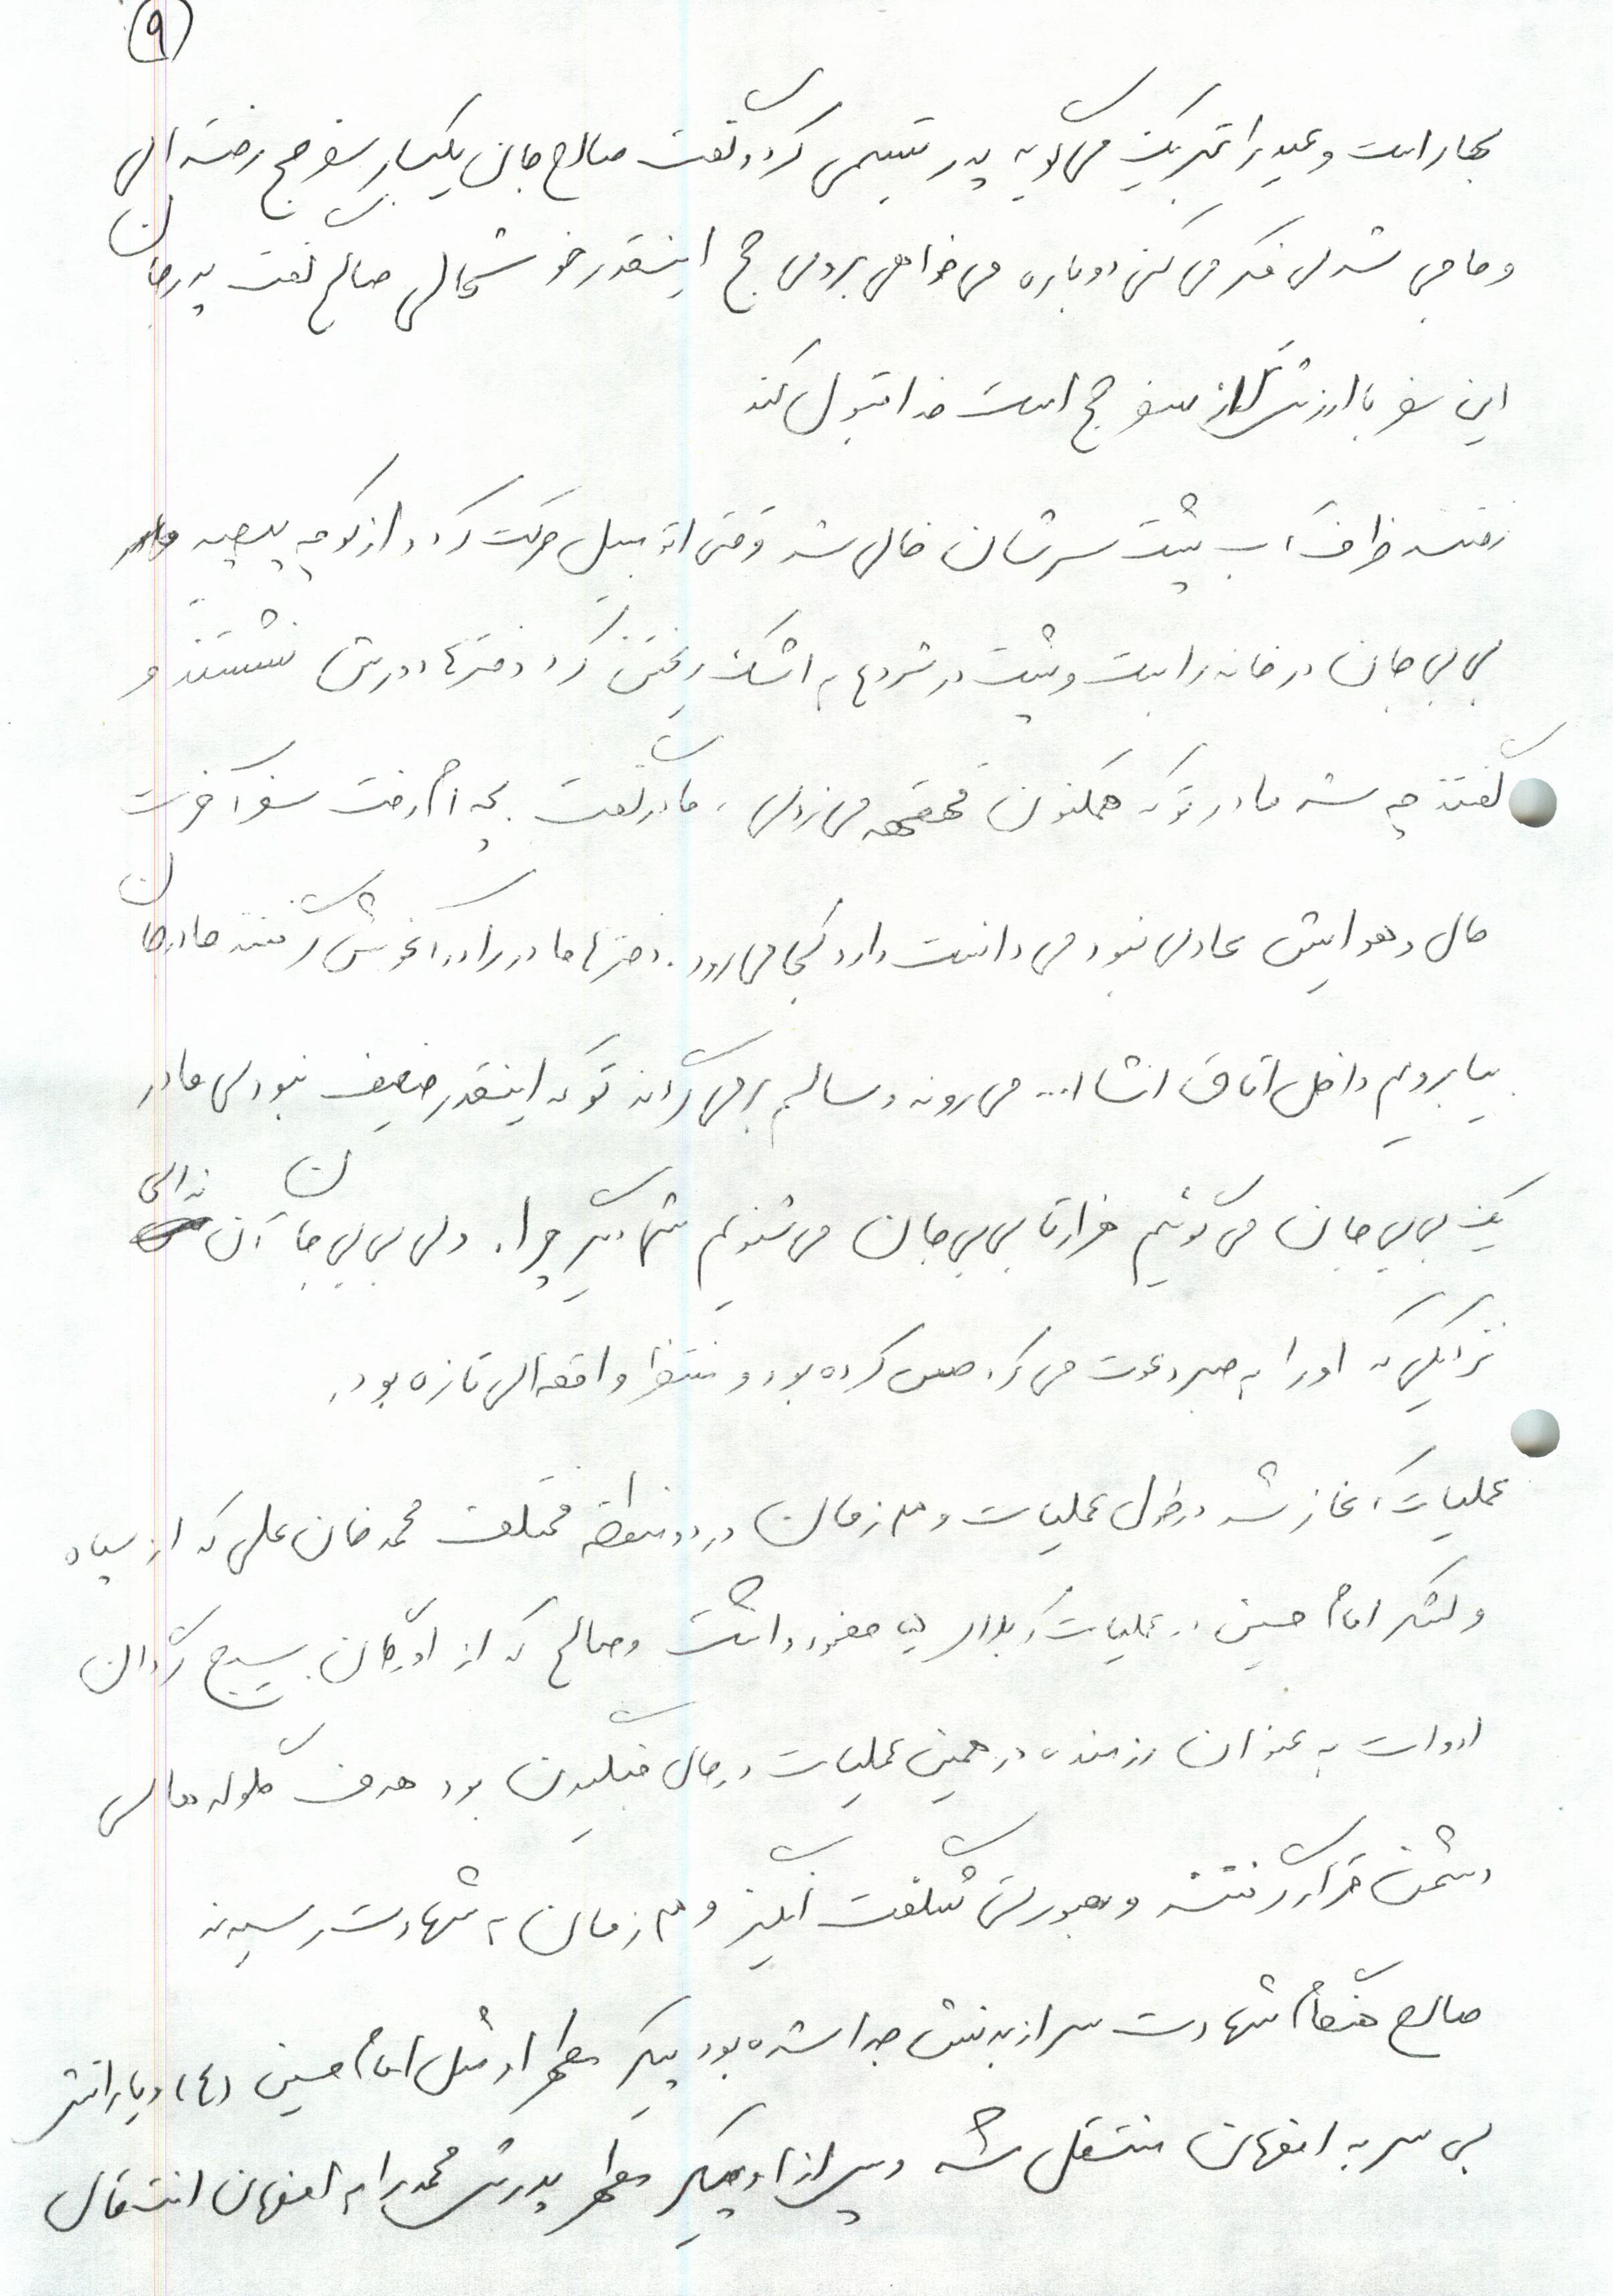 ۹
بهار است و عید را تبریک می گویه پدر تبسمی کرد و گفت صالح جان یکبار سفر حج رفته ای
و حاجی شدی فکر می کنی دوباره می خواهی بروی حج اینقدر خوشحالی صالح گفت پدرجان
این سفر با ارزشتر از سفر حج است خدا قبول کند
رفتند ظرف آب پشت سرشان خالی شد وقتی اتومبیل حرکت کرد و از کوچه پیچید
بی بی جان در خانه را بست و پشت در شروع به اشک ریختن کرد دخترها دورش نشستند و
گفتند چه شد مادر تو که هم اکنون قهقهه می زدی، مادر گفت بچه ام رفت سفر آخرت
حال و هوایش عادی نبود می دانست دارد کجا می رود. دخترها مادر را در آغوش گرفتند مادرجان
بیا برویم داخل اتاق انشاا... می روند و سالم برمی گردند تو که اینقدر ضعیف نبودی مادر
یک بی بی جان می گوئیم هزار تا بی بی جان می شنویم شما دیگر چرا. ولی بی بی جان آن ندای
نزدیکی که او را به صبر دعوت می کرد حس کرده بود و منتظر واقعه ای تازه بود.
عملیات آغاز شد در طول عملیات و هم زمان در دو منطقه مختلف محمد خان علی که از سپاه
و لشکر امام حسین در عملیات کربلای حضور داشت و صالح که از بسیج گردان
ادوات به عنوان رزمنده در همین عملیات در حال جنگیدن بود هدف گلوله های
دشمن قرار گرفتند و بصورتی شگفت انگیز و هم زمان به شهادت رسیدند
صالح هنگام شهادت سر از بدنش جدا شده بود پیکر مطهر او مثل امام حسین (ع) و یارانش
بی سر به اصفهان منتقل شد و پس از او پیکر مطهر پدرش محمد را به اصفهان انتقال